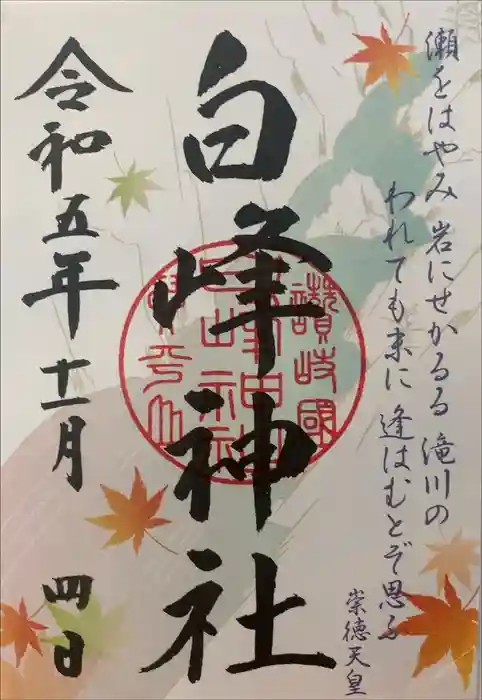 瀬をはやみ 岩にせかるる 滝川の
われても末に 逢はむとぞ思ふ
崇徳天皇
白峰神社
讃岐國
令和五年十一月四日